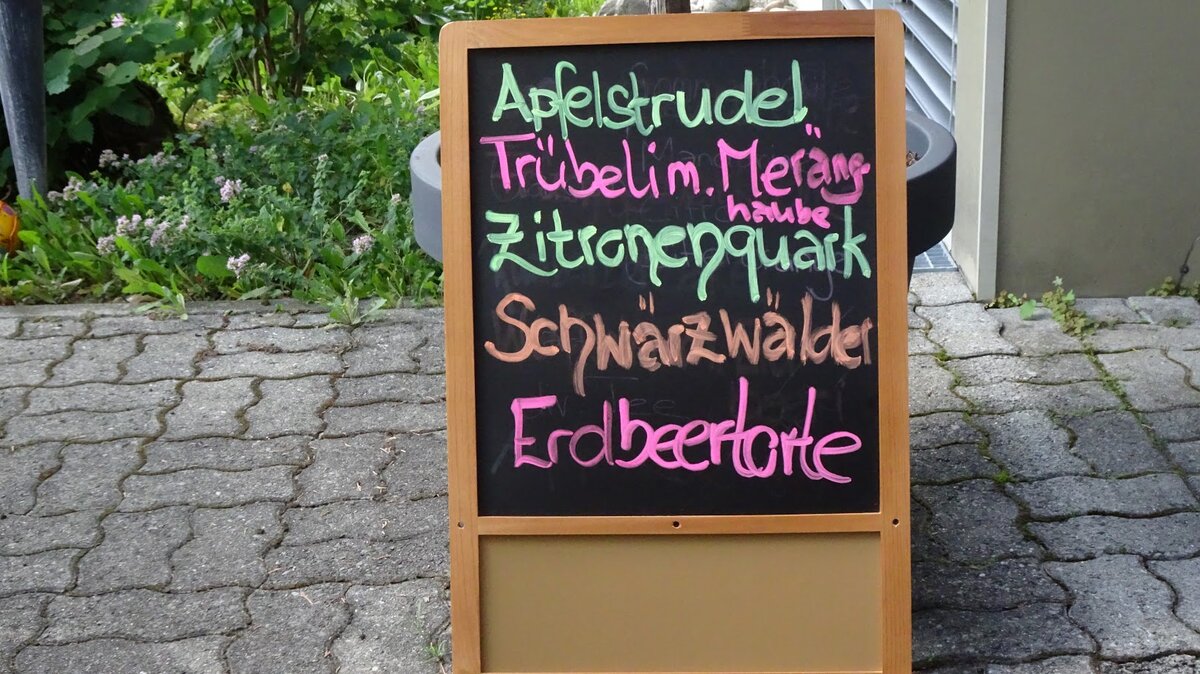 Apfelstrudel
Trübeli m. Meräng-
haube
Zitronenquark
Schwärzwälder
Erdbeertorte